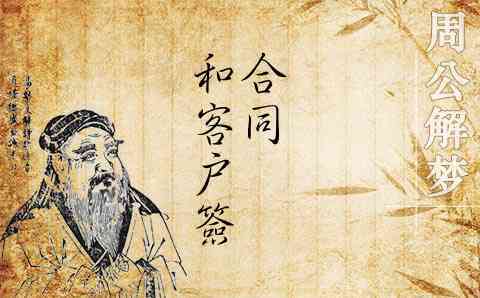 周公解梦
和客户签
合同